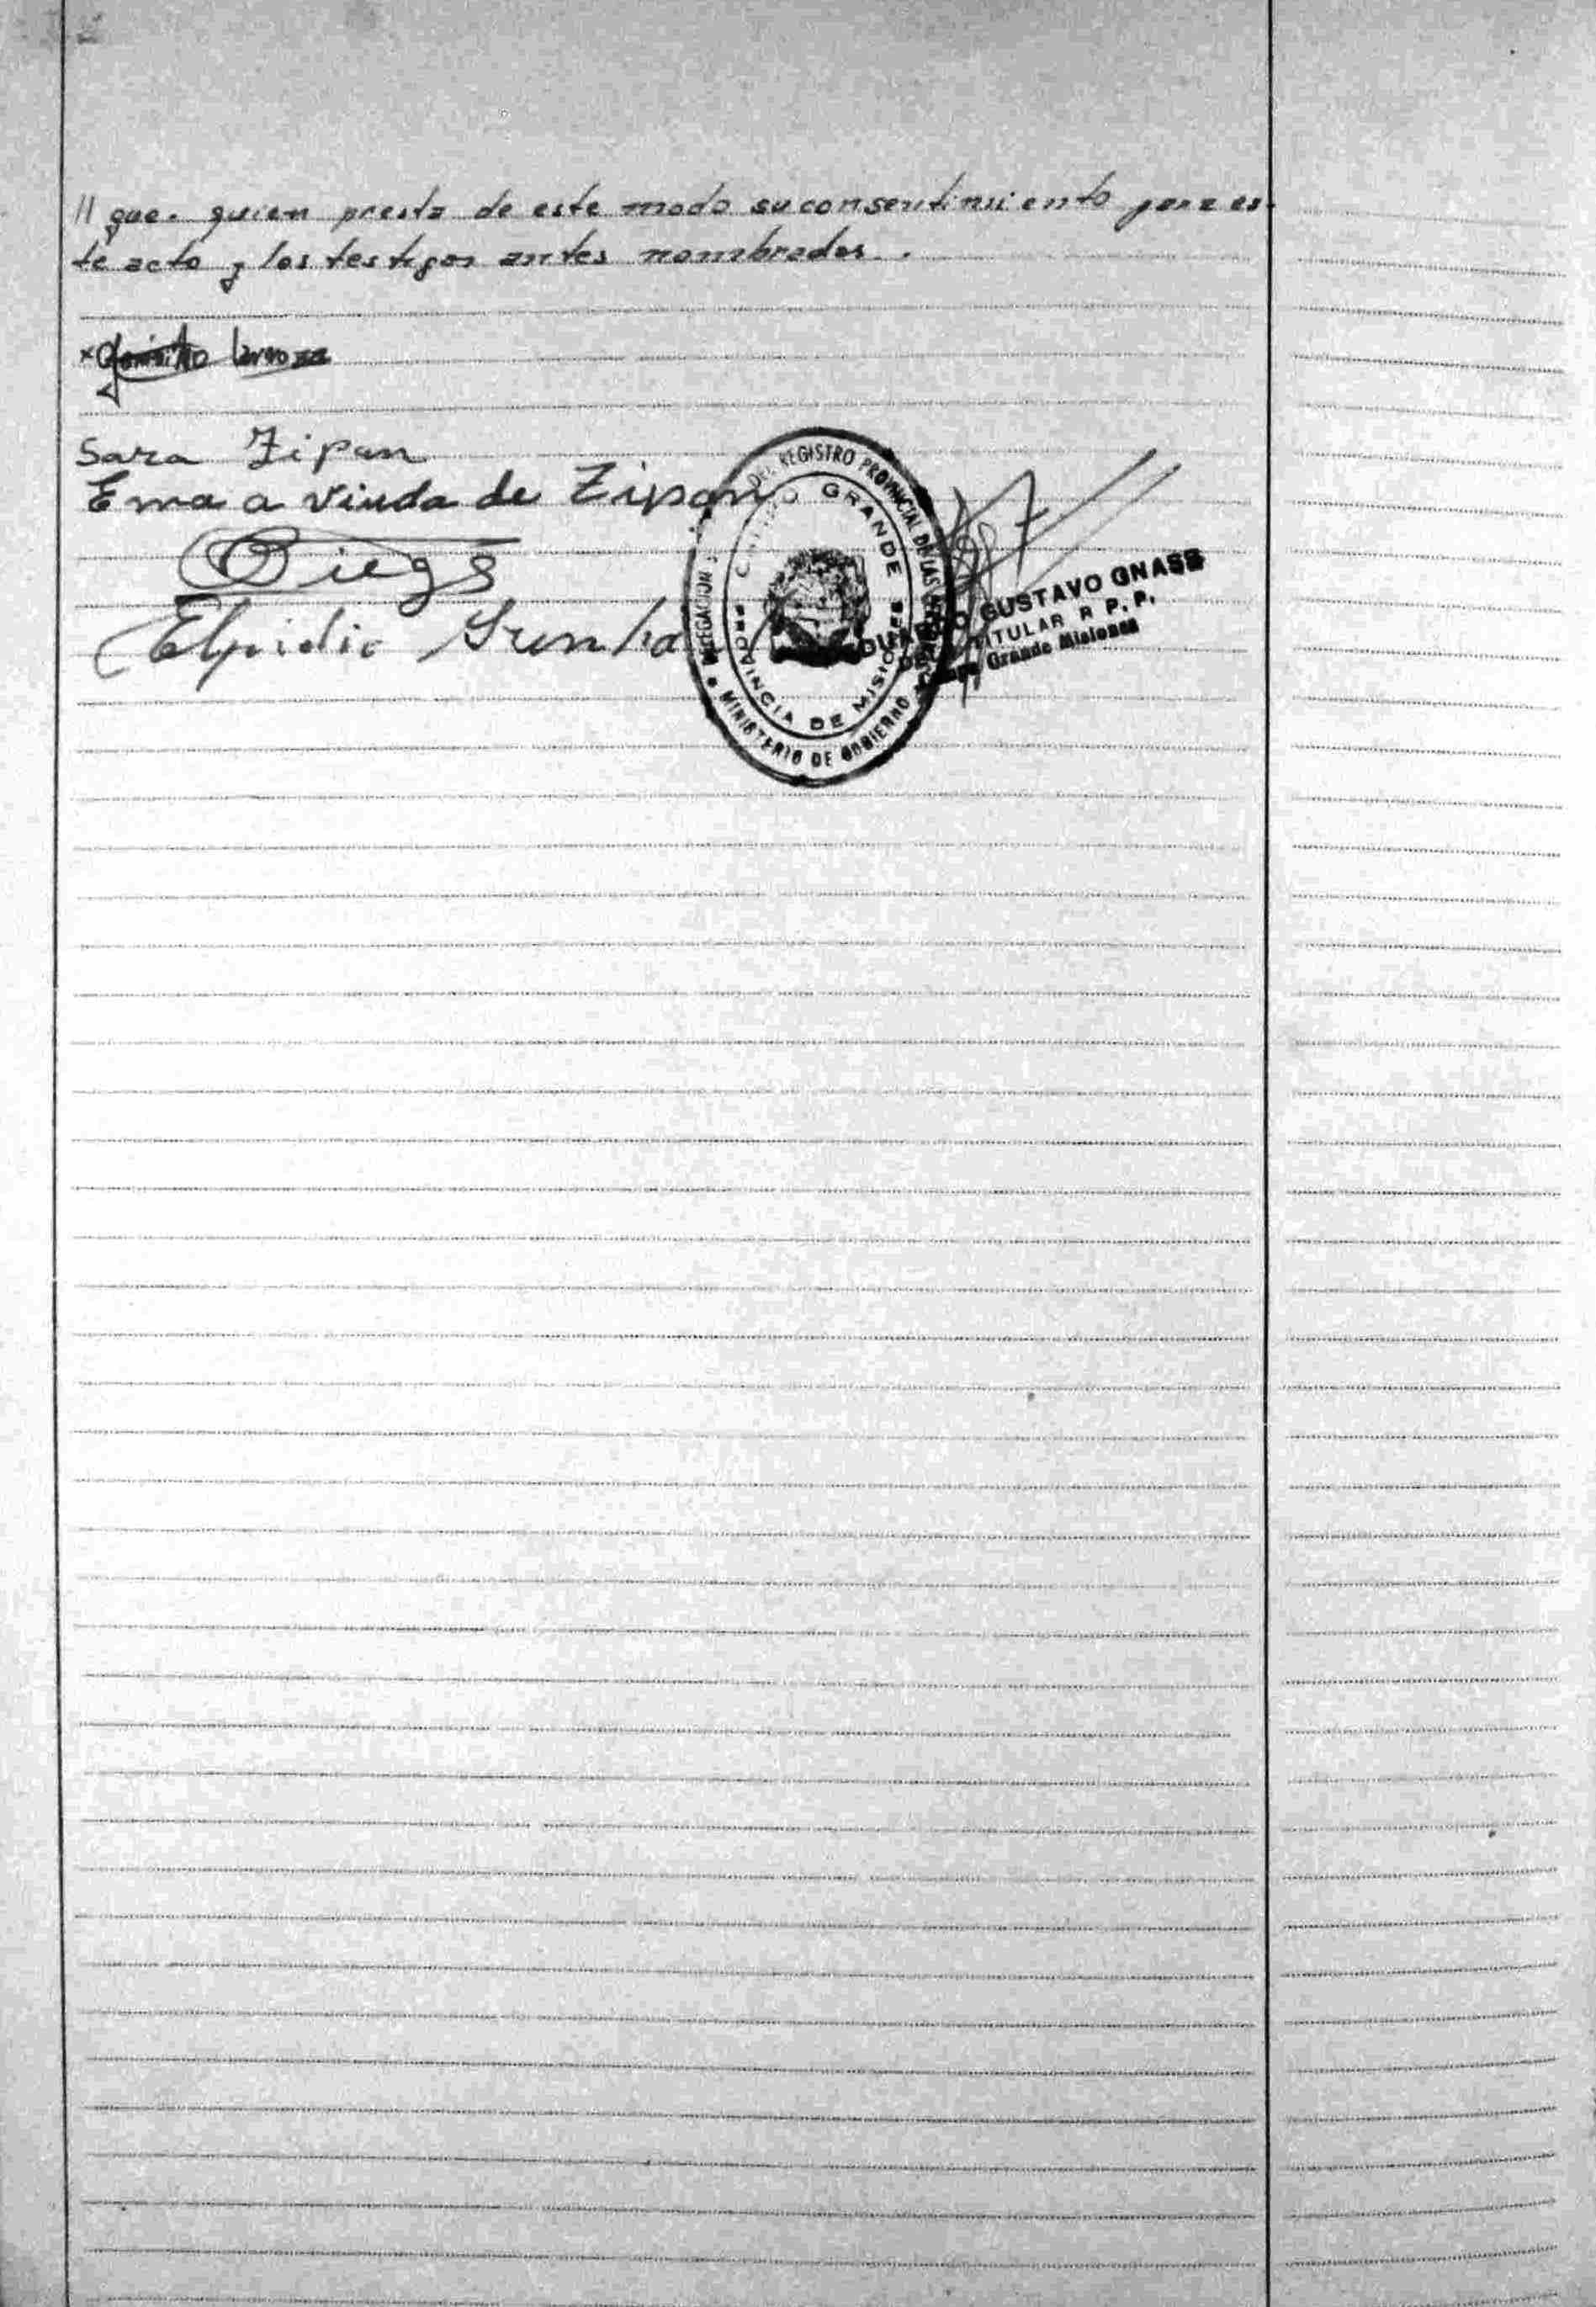 // que. quien presta de este modo su consentimiento para es-
te acto y los testigos antes nombrados.
Sara Zipan
Ema a viuda de Zipan
Diego
Elpidio
DELEGACION DEL REGISTRO PROVINCIAL DE LAS
GRANDE
PROVINCIA DE MISIONES
MINISTERIO DE GOBIERNO
GUSTAVO GNASS
TITULAR R P. P.
Grande Misiones